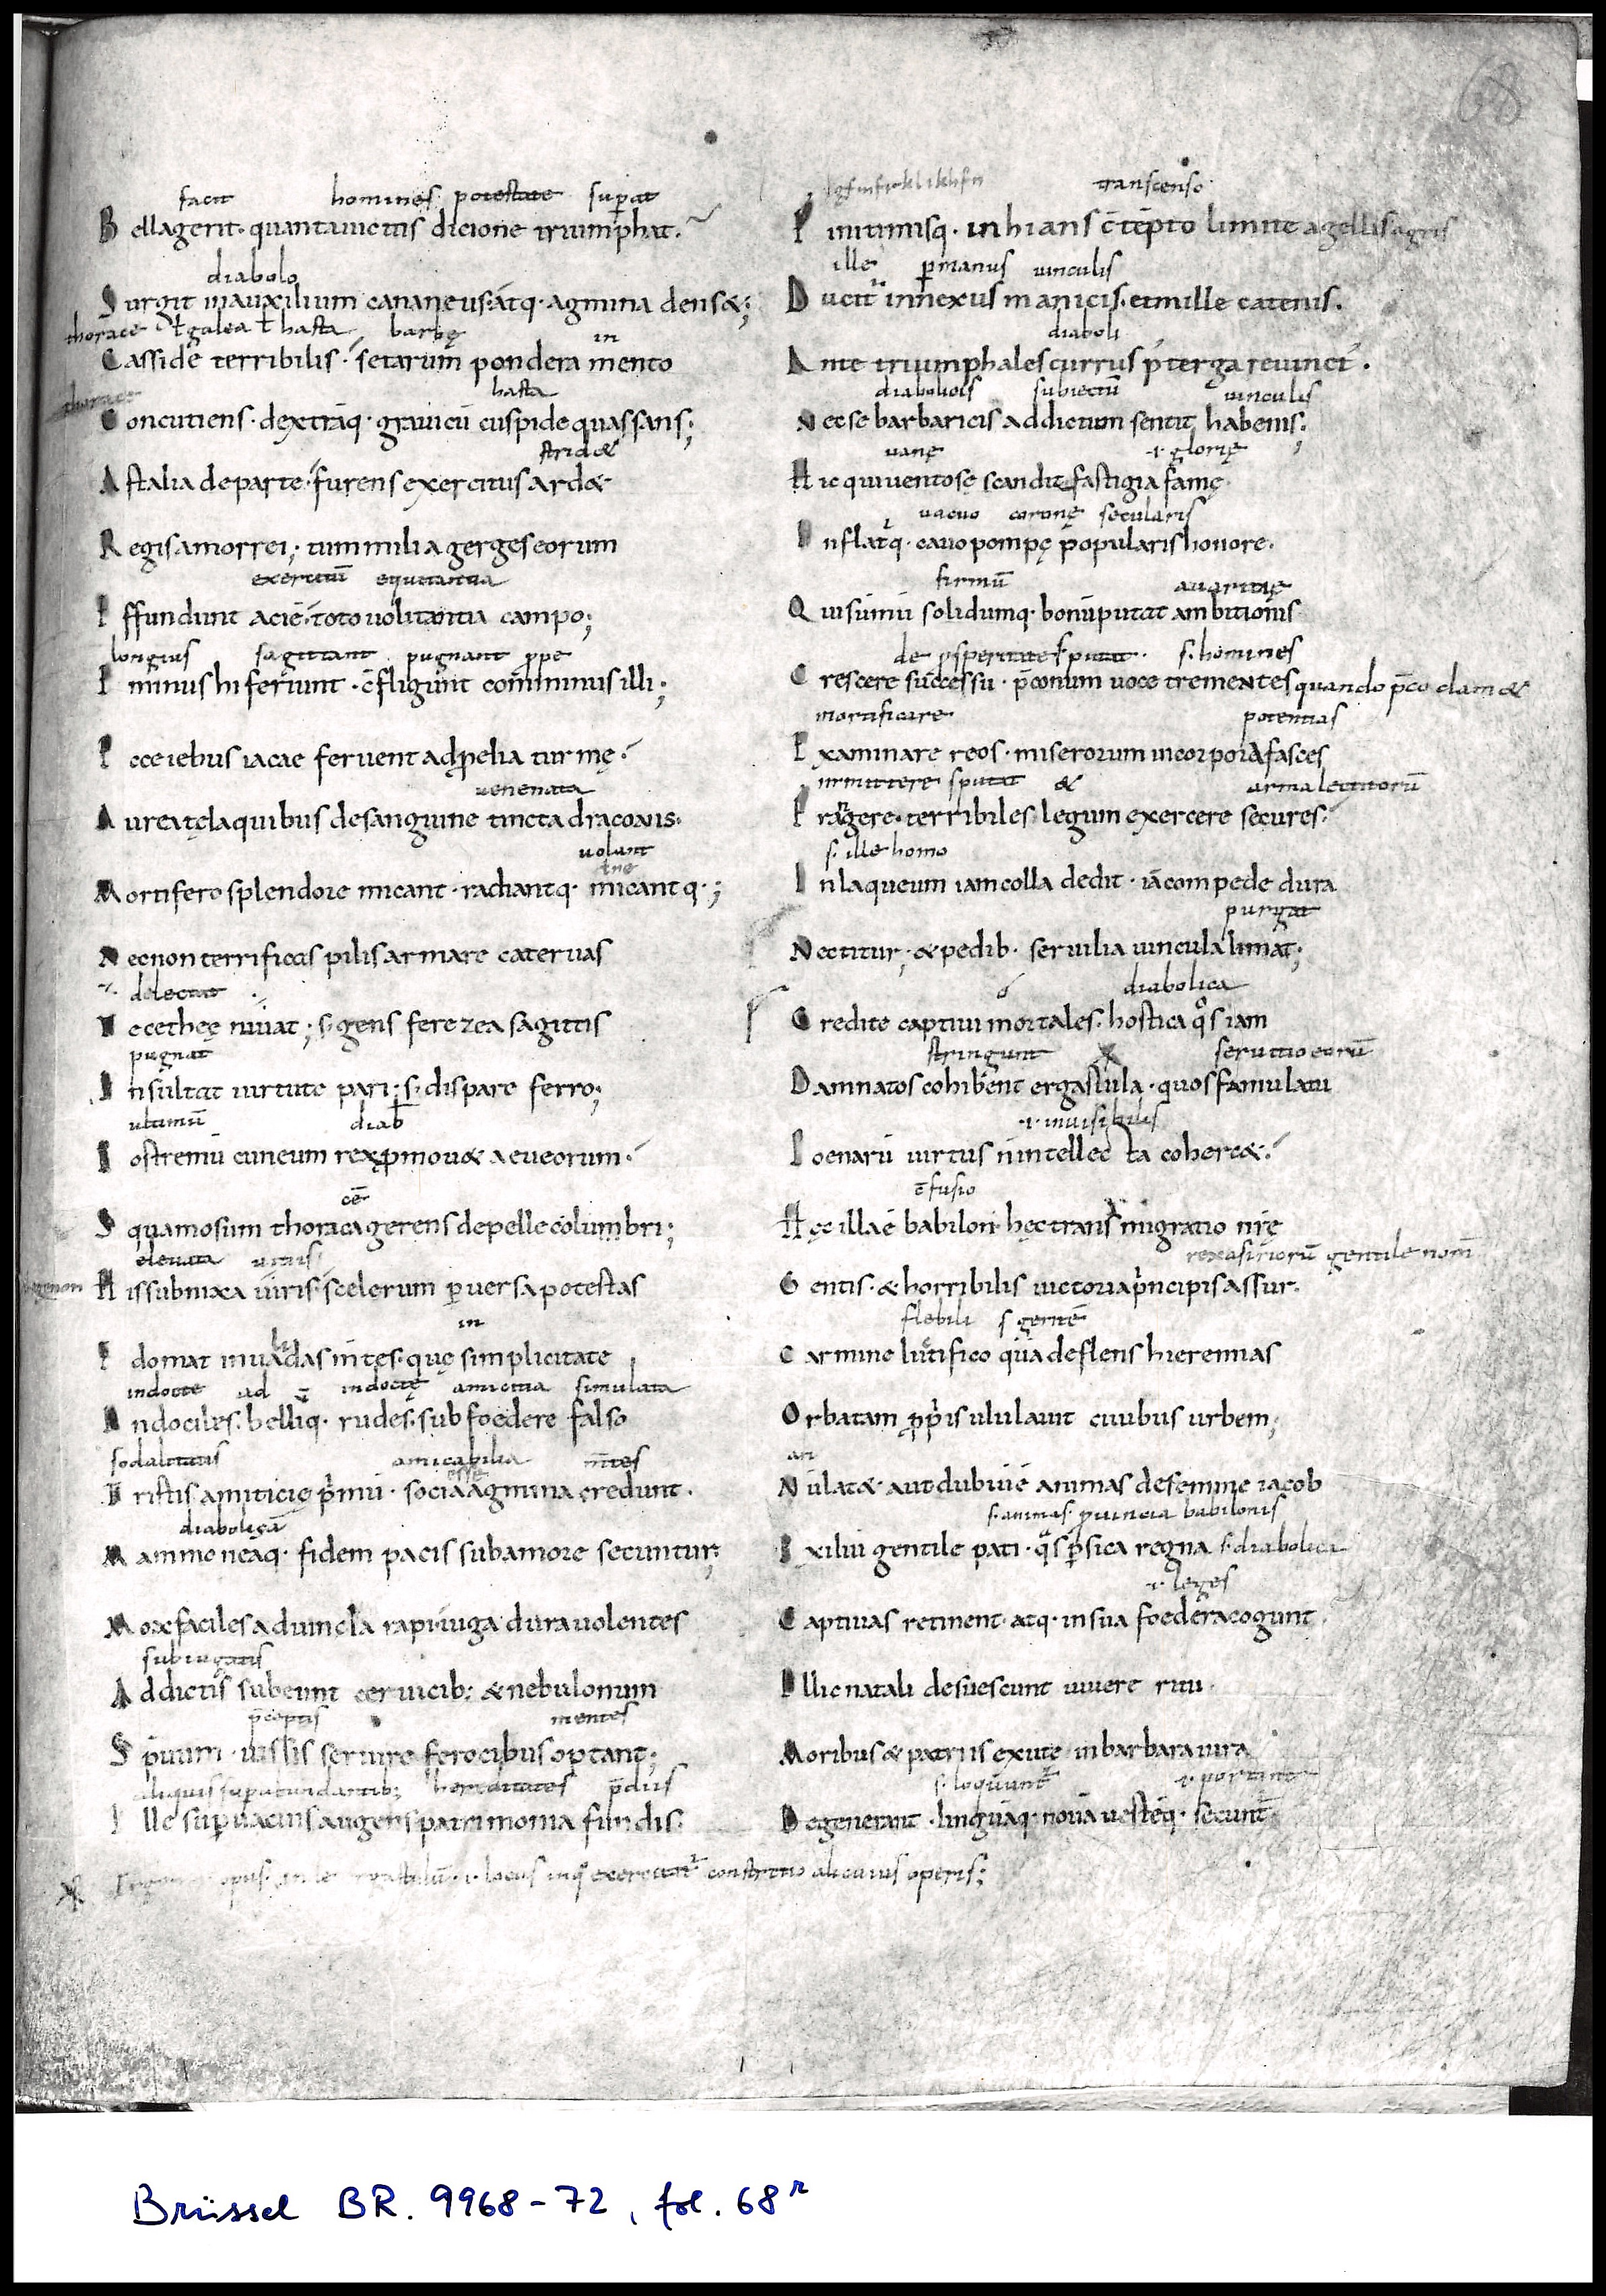 68
facit homines potestate sup̄at
Bella gerit. quanta victis dicione triumphat.
diabolo
Surgit in auxilium cananeus. atq· agmina denset;
thorace ł galea ł hasta barbę in
Casside terribilis. setarum pondera mento
hasta
Concutiens· dextraq· grauicū cuspide quassans;
stridet
Ast alia de parte· furens exercitus ardet
Regis amorrei; tum milia gergeseorum
exercitū equitantia
Effundunt aciē· toto uolitantia campo;
longius sagittant pugnant prope
Eminus hi feriunt· c̄fligunt comminus illi;
Ecce iebusiacae feruent ad p̄elia turmę·
uenenata
Aurea tela quibus de sanguine tincta draconis·
uolant
Mortifero splendore micant· radiantq· micantq·;
Nec non terrificis pilis armare cateruas
delectat
Te cetheę iuuat; s; gens ferezea sagittis
pugnat
Insultat uirtute pari· s; dispare ferro;
ultimū diab
Postremū cuneum rex p̄mouet aeueorum·
Squamosum thoraca gerens de pelle columbri;
eleuata
His subnixa uiris· scelerum puersa potestas
in
Edomat inualidas mntes· quę simplicitate
indocte ad indoctę amicitia simulata
Indociles· belliq· rudes· sub foedere falso
sodalitatis amicabilia mtes
Tristis amiticię p̄mū· socia agmina credunt.
diabolicā
Mammoneāq· fidem pacis sub amore secuntur;
Mox faciles ad uincla rapi· iuga dura uolentes
subiugatis
Addictis subeunt ceruicib; & nebulonum
p̄ceptis mentes
Sp̄uum· iussis seruire ferocibus optant;
aliquis supabundantib; hereditates p̄diis
Ille supuacuis augens patrimonia fundis·
opus· locus inq° exercitat̄ constructio alicuius operis;
transcenso
Finitimisq· inhians c̄tēpto limite agellis agris
ille pmanus uinculis
Ducit innexus manicis· et mille catenis.
diaboli
Ante triumphales currus p̄ terga reuinct̄.
diabolicis subiectū uinculis
Nec se barbaricis addictum sentit habenis;
uanę ·i· glorię
Hic qui uentosę scandit fastigia famę
uacuo coronę secularis
Inflatq· cauo pompę popularis honore.
firmū auaritię
Qui sūmū solidumq· bonū putat ambitionis
de p̄speritate s; putat s; homines
Crescere successu· p̄conum uoce trementes quando p̄co clamat
mortificare potentias
Examinare reos· miserorum in corpora fasces
inmittere s; putat & arma lectitorū
Frangere· terribiles legum exercere secures·
s; ille homo
In laqueum iam colla dedit· iā compede dura
purgat
Nectitur; & pedib· seruilia uincula limat;
ó diabolica
Credite captiui mortales· hostica q°s iam
stringunt seruitio eorū
Damnatos cohibent ergastula· quos famulatu
·i· inuisibilis
Poenarū uirtus n̄ intellecta cohercet·
c̄fusio
Hęc illa ē babilon· hęc transmigratio nr̄ę
rex asiriorū gentile nom̄
Gentis· & horribilis uictoria p̄ncipis assur.
flebili s; gentē
Carmine luctifico quā deflens hieremias
Orbatam p̄pris ululauit ciuibus urbem;
an
Nū latet aut dubiū ē animas de semine iacob
s; animas prouincia babilonis
Exiliū gentile pati· q̄s p̄sica regna s; diabolica
·i· leges
Captiuas retinent· atq· in sua foedera cogunt
Illic natali desuescunt uiuere ritu·
Moribus & patriis exutę in barbara iura
s; loquunt̄ ·i· portant
Degenerant· linguāq· nouā uestēq· secunt̄
Brüssel BR. 9968-72, fol. 68r